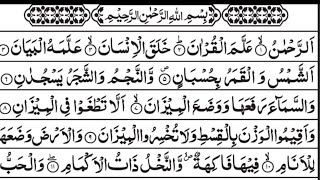 بِسْمِ اللّٰهِ الرَّحْمٰنِ الرَّحِيْمِ
اَلرَّحْمٰنُ ۙ﴿۱﴾ عَلَّمَ الْقُرْاٰنَ ؕ﴿۲﴾ خَلَقَ الْاِنْسَانَ ۙ﴿۳﴾ عَلَّمَهُ الْبَيَانَ ﴿۴﴾
اَلشَّمْسُ وَ الْقَمَرُ بِحُسْبَانٍ ۪﴿۵﴾ وَّ النَّجْمُ وَ الشَّجَرُ يَسْجُدٰنِ ﴿۶﴾
وَ السَّمَآءَ رَفَعَهَا وَ وَضَعَ الْمِيْزَانَ ۙ﴿۷﴾ اَلَّا تَطْغَوْا فِى الْمِيْزَانِ ﴿۸﴾
وَ اَقِيْمُوا الْوَزْنَ بِالْقِسْطِ وَ لَا تُخْسِرُوا الْمِيْزَانَ ﴿۹﴾ وَ الْاَرْضَ وَضَعَهَا
لِلْاَنَامِ ۙ﴿۱۰﴾ فِيْهَا فَاكِهَةٌ ۪ۙ وَّ النَّخْلُ ذَاتُ الْاَكْمَامِ ۖ﴿۱۱﴾ وَ الْحَبُّ